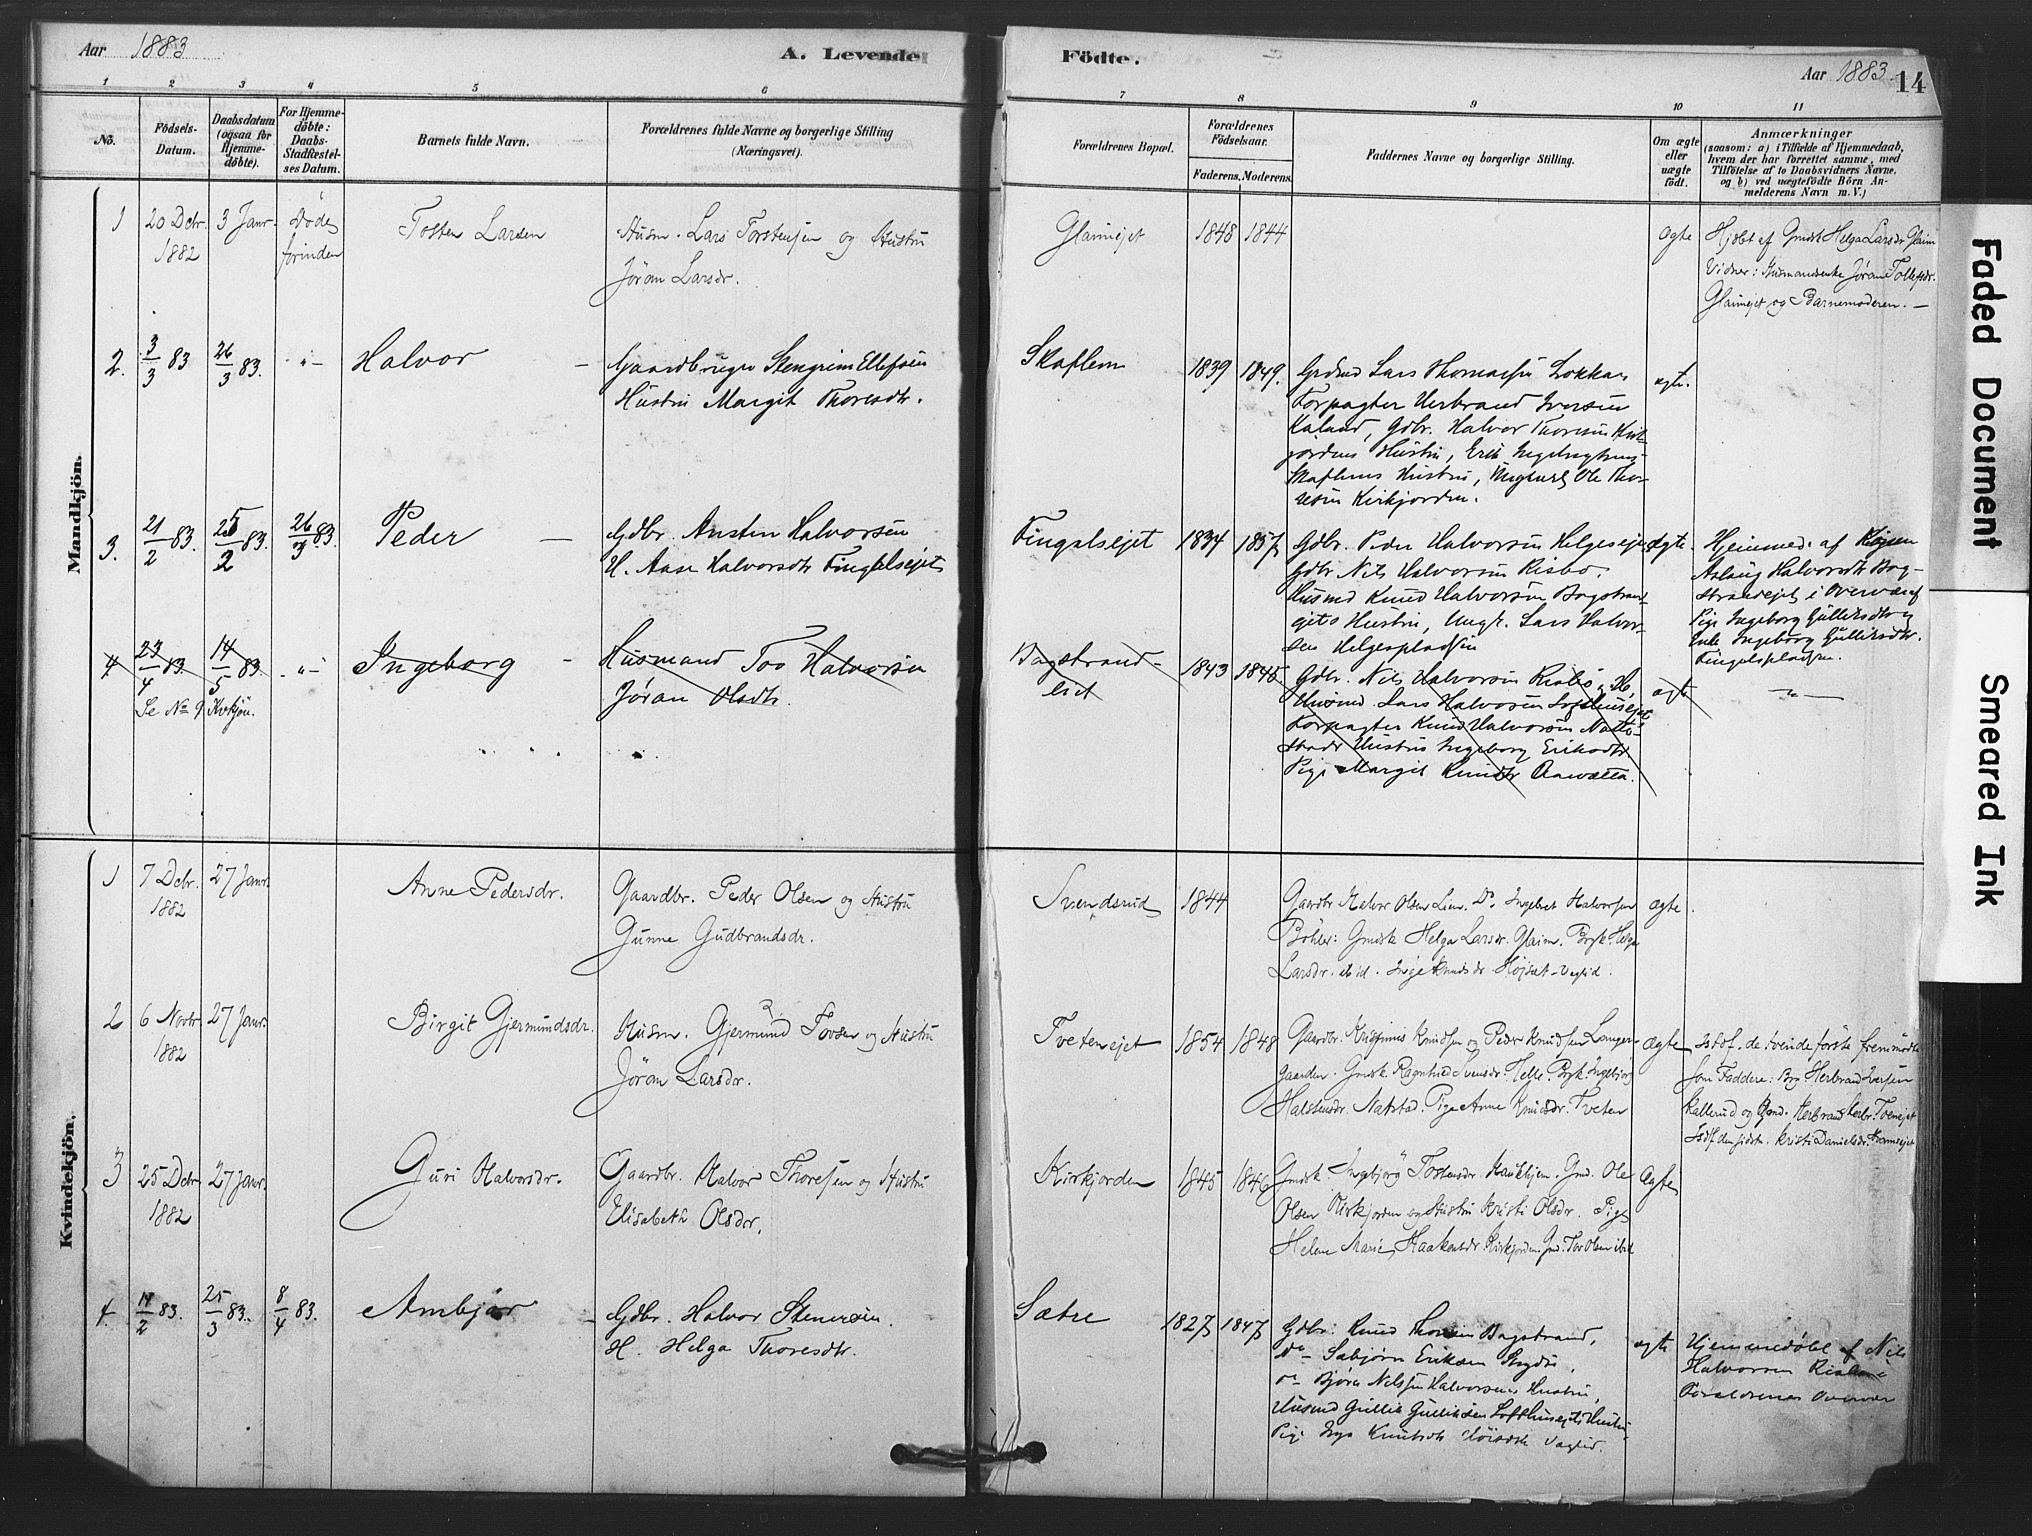 Aar 1883
A. Levende
Födte.
Aar 1883.
14
1 2 3 4 5 6 7 8 9 10 11
No.
Födsels-
Datum.
Daabsdatum
(ogsaa for
Hjemme-
döbte).
For Hjemme-
döbte:
Daabs-
Stadfæstel-
ses Datum.
Barnets fulde Navn.
Forældrenes fulde Navne og borgerlige Stilling
(Næringsvei).
Forældrenes Bopæl.
Forældrenes
Födselsaar.
Faderens. Moderens.
Faddernes Navne og borgerlige Stilling.
Om ægte
eller
uægte
födt.
Anmærkninger
(saasom: a) i Tilfælde af Hjemmedaab,
hvem der har forrettet samme, med
Tilföielse af to Daabsvidners Navne,
og b) ved uægtefödte Börn An-
melderens Navn m. V.)
Mandkjön.
1 20 Debr 3 Janr. Döde Tosten Larsen Husm. Lars Torstensen og Hustru
1882 forinden Jøran Larsdr.
Glaimejet 1848 1844 Ægte Hjdbt af Gmdsk Helga Larsdr Glaim
Vidner: Husmandsenke Jøran Tollefsdr.
Glaimejet og Barnemoderen. —
2. 3/3 83 26/3 83. -"- Halvor — Gaardbruger Stengrim Ellefsen
Hustru Margit Thoresdtr.
Skaflem 1839 1849. Grdmd Lars Thomassen Lokkar
Forpagter Herbrand Iversen
Kaland, Gdbr. Halvor Thoresen Kirk-
jordens Hustru, Erik
Skaflems Hustru, Ungkarl Ole Tho-
resen Kirkjorden.
ægte.
3. 21/2 83. 25/2 83. 26/3 83. Peder — Gdbr. Austen Halvorsen
H. Aase Halvorsdtr Fingalsejet
Fingalsejet 1834 1837 Gdbr. Peder Halvorsen Helgesejet
Gdbr Nils Halvorsen Risbø.
Husmd Knud Halvorsen Bagstrand-
ejets Hustru, Ungk. Lars Halvor-
sen Helgespladsen
Ægte. Hjemmed. af Konen
Aslaug Halvorsdtr Bag-
strandejet i Overvær af
Pige Ingeborg Gulliksdtr og
Enke Ingeborg Gulliksdtr.
Fingalspladsen.
4 23/4 83. 14/5 83. -"- Ingeborg - Husmand Tov Halvorsen
Se No 9 Kvkjön. Jøran Olsdtr.
Bagstrand-
eiet
1843 1845 Gdbr. Nils Halvorsen Risbø, H,
Husmd. Lars Halvorsen Lofthusejet
Forpagter Knud Halvorsen
Hustru Ingeborg Eriksdtr
Pige Margit Knudsdtr
ægte
Kvindekjön.
1 7 Debr. 27 Janr. Anne Pedersdr. Gaardbr. Peder Olsen og Hustru
1882 Gunne Gudbrandsdr.
Svendsrud 1844 Gaardbr Halvor Olsen Lien. Do Ingebret Halvorsen
Böhler: Gmdsk Helga Larsdr. Glaim. Bgk. Helga
Larsdr. ibid. Inge Knudsdr Højset-Veglid.
Ægte.
2 6 Novbr 27 Janr. Birgit Gjermundsdr. Husm. Gjermund Tovsen og Hustru
1882 Jøran Larsdr.
Tvetenejet 1854 1848 Gaardbr. Kristinus Knudsen og Peder Knudsen Langer-
gaarden. Gmdsk. Ragnhild Svensdr. Helle. Bgk. Ingebjørg
Halstensdr. Natstad. Pige Anne Knudsdr. Tveten
Ægte Istdf. de tvende förste fremmødte
som Faddere: Brg Herbrand Iversen
Kallerud og Gmd. Herbrand Herbr. Tvenejet
Istdf den sidste. Kristi Danielsdr.
3 25 Debr 27 Janr. Guri Halvorsdr. Gaardbr. Halvor Thoresen og Hustru
1882 Elisabeth Olsdr.
Kirkjorden 1845 1846 Gmdsk. Ingebjörg Tostensdr. Haukhjem. Gmd. Ole
Olsen Kirkjorden og Hustru Kristi Olsdr. Pige
Helene Marie Haakensdr. Kirkjorden. Gmd. Tor Olsen ibid
Ægte
4. 11/2 83. 25/3 83. 8/4 83. Ambjør — Gdbr. Halvor Stenersen.
H. Helga Thoresdtr.
Sætre 1827 1847 Gdbr. Knud Thorsen Bagstrand,
Do Sæbjörn Eriksen
Do Björn Nilssen Halvorsens Hustru,
Husmd Gullik Gulliksen Lofthusejets Hustru
Pige Inge Knudsdtr Höisæt Væglid.
ægte Hjemmedøbt af Nils
Halvorsen Risbø i
Forældrenes Overvær
Faded Document
Smeared Ink